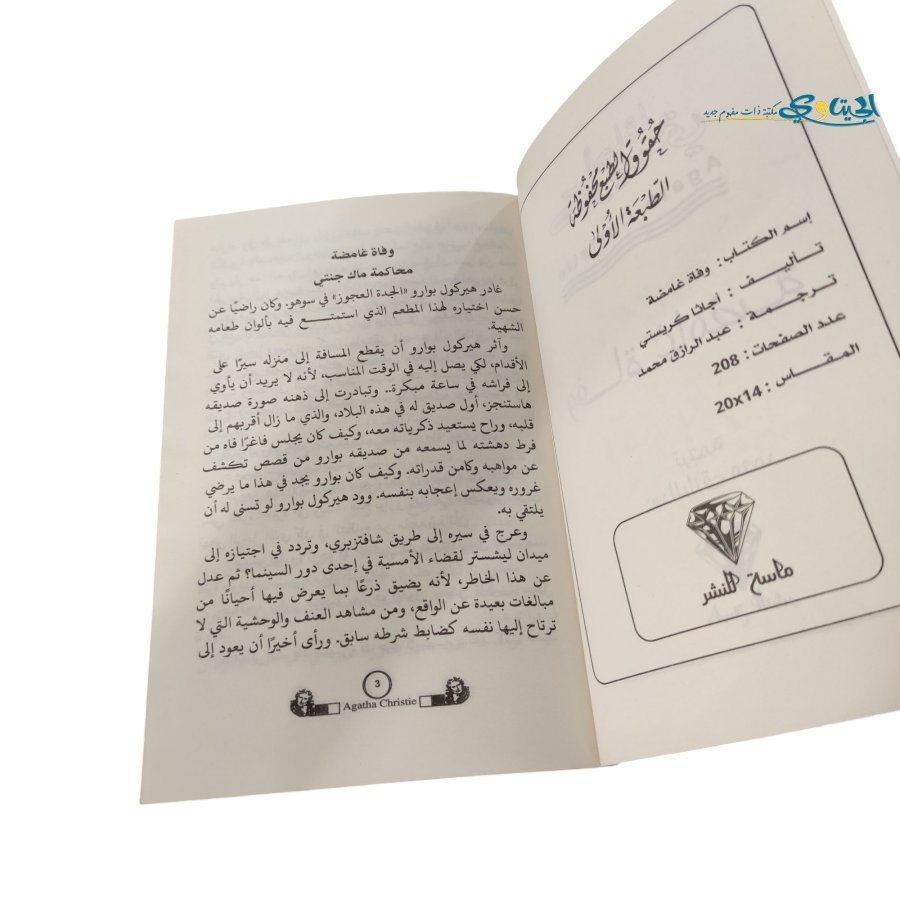 الحيتاوي مكتبة ذات مفهوم جديد
حُقُوقُ الطَّبْعِ مَحْفُوظَة
الطَّبْعَةُ الأُولَى
إسم الكتاب: وفاة غامضة
تأليف : أجاثا كريستي
ترجمة : عبد الرازق محمد
عدد الصفحات: 208
المقاس: 14×20
ماسة للنشر
وفاة غامضة
محاكمة ماك جنتي
غادر هيركول بوارو «الجدة العجوز» في سوهو. وكان راضيًا عن
حسن اختياره لهذا المطعم الذي استمتع فيه بألوان طعامه
الشهية.
وآثر هيركول بوارو أن يقطع المسافة إلى منزله سيرًا على
الأقدام، لكي يصل إليه في الوقت المناسب، لأنه لا يريد أن يأوي
إلى فراشه في ساعة مبكرة.. وتبادرت إلى ذهنه صورة صديقه
هاستنجز، أول صديق له في هذه البلاد، والذي ما زال أقربهم إلى
قلبه، وراح يستعيد ذكرياته معه، وكيف كان يجلس فاغرًا فاه من
فرط دهشته لما يسمعه من صديقه بوارو من قصص تكشف
عن مواهبه وكامن قدراته. وكيف كان بوارو يجد في هذا ما يرضي
غروره ويعكس إعجابه بنفسه. وود هيركول بوارو لو تسنى له أن
يلتقي به.
وعرج في سيره إلى طريق شافتزبري، وتردد في اجتيازه إلى
ميدان ليشستر لقضاء الأمسية في إحدى دور السينما؟ ثم عدل
عن هذا الخاطر، لأنه يضيق ذرعًا بما يعرض فيها أحيانًا من
مبالغات بعيدة عن الواقع، ومن مشاهد العنف والوحشية التي لا
ترتاح إليها نفسه كضابط شرطه سابق. ورأى أخيرًا أن يعود إلى
3
Agatha Christie